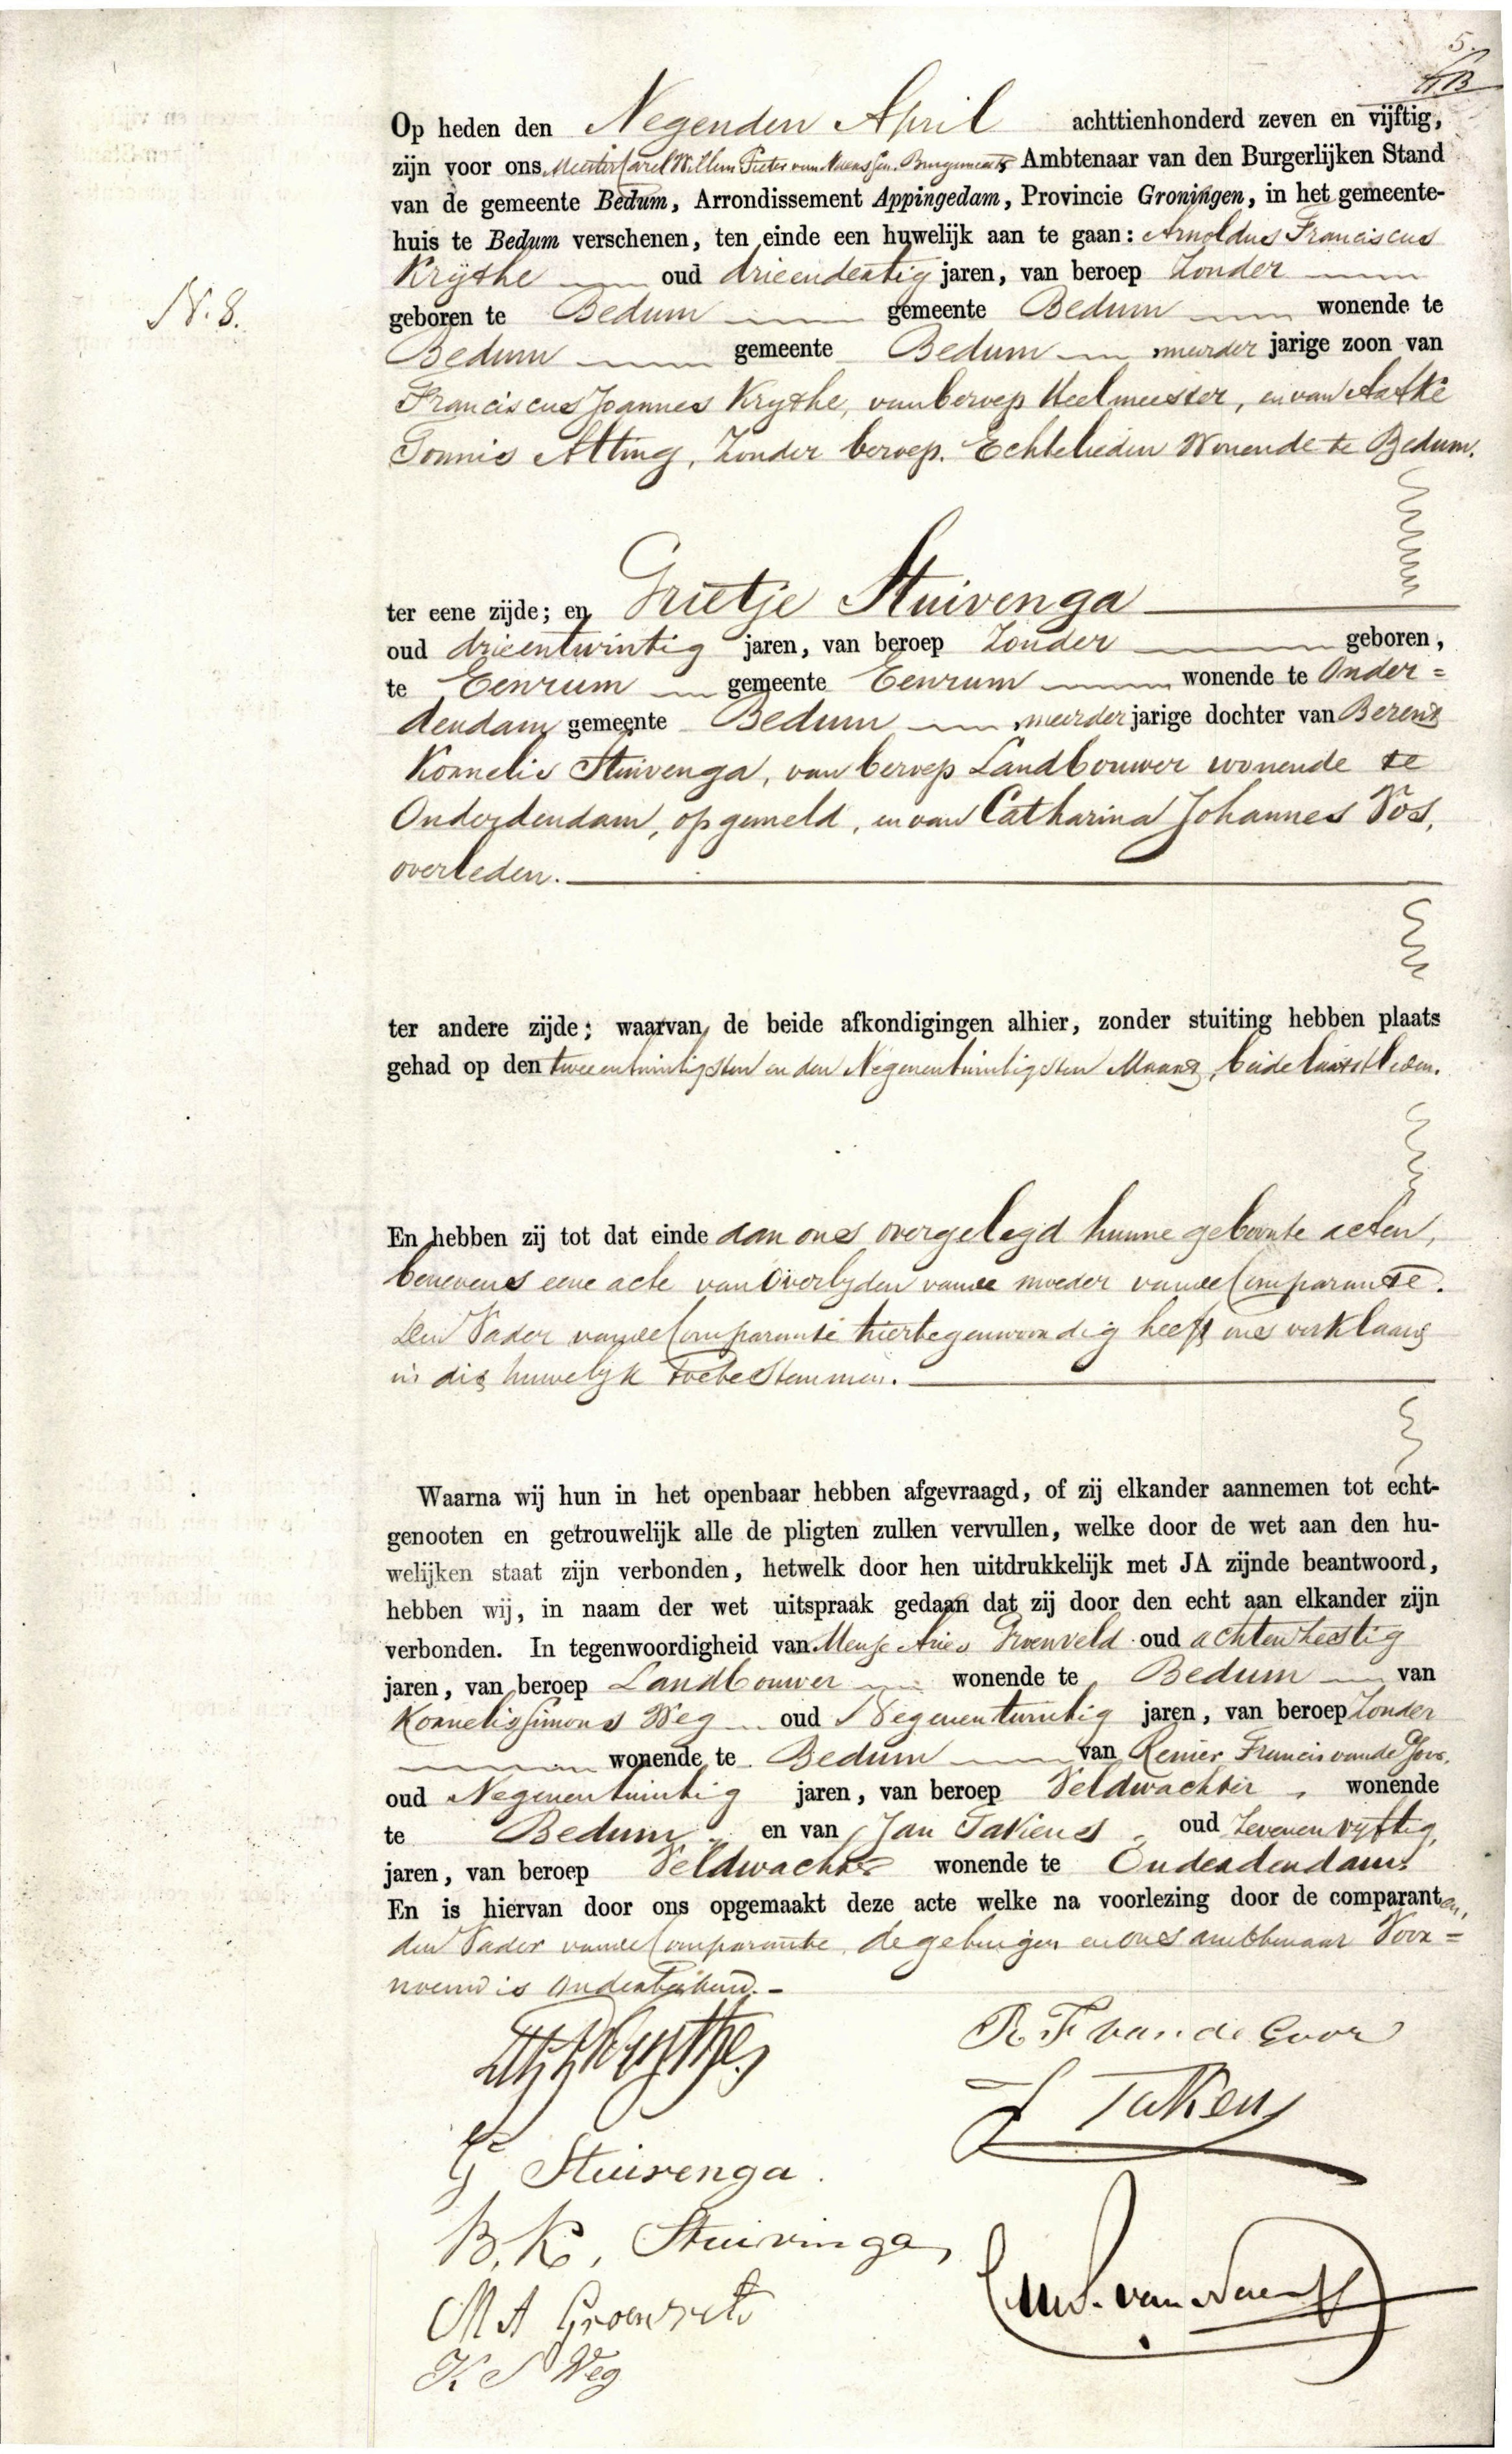 5.
Op heden den Negenden April achttienhonderd zeven en vijftig,
zijn voor ons Meester Carel Willem Pieter van Naerssen. Burgemeester Ambtenaar van den Burgerlijken Stand
van de gemeente Bedum, Arrondissement Appingedam, Provincie Groningen, in het gemeente-
huis te Bedum verschenen, ten einde een huwelijk aan te gaan: Arnoldus Franciscus
Krijthe oud drieendertig jaren, van beroep Zonder
geboren te Bedum gemeente Bedum wonende te
N. 8.
Bedum gemeente Bedum meerder jarige zoon van
Franciscus Joannes Krythe, van beroep Heelmeester, en van Aafke
Tonnis Alting, Zonder beroep. Echtelieden Wonende te Bedum.
ter eene zijde; en Grietje Stuivenga
oud drieentwintig jaren, van beroep Zonder geboren,
te Eenrum gemeente Eenrum wonende te Onder=
dendam gemeente Bedum meerder jarige dochter van Berend
Kornelis Stuivenga, van beroep Landbouwer wonende te
Onderdendam, opgemeld, en van Catharina Johannes Vos,
overleden.
ter andere zijde; waarvan de beide afkondigingen alhier, zonder stuiting hebben plaats
gehad op den tweeentwintigsten en den Negenentwintigsten Maart, beide laatstleden.
En hebben zij tot dat einde aan ons overgelegd hunne geboorte acten,
benevens eene acte van Overlyden van de moeder van de Comparante.
Den Vader van de Comparante hiertegenwoordig heeft ons verklaard
in dit huwelyk toetestemmen.
Waarna wij hun in het openbaar hebben afgevraagd, of zij elkander aannemen tot echt-
genooten en getrouwelijk alle de pligten zullen vervullen, welke door de wet aan den hu-
welijken staat zijn verbonden, hetwelk door hen uitdrukkelijk met JA zijnde beantwoord,
hebben wij, in naam der wet uitspraak gedaan dat zij door den echt aan elkander zijn
verbonden. In tegenwoordigheid van Menje Aries Groenveld oud achtenzestig
jaren, van beroep Landbouwer wonende te Bedum van
Kornelis Simons Weg oud Negenentwintig jaren, van beroep Zonder
wonende te Bedum van Renier Francis van de Goor.
oud Negenentwintig jaren, van beroep Veldwachter, wonende
te Bedum, en van Jan Takens, oud Zevenenvyftig,
jaren, van beroep Veldwachter wonende te Onderdendam.
En is hiervan door ons opgemaakt deze acte welke na voorlezing door de comparanten,
den Vader van de Comparante, de getuigen en ons ambtenaar Voor=
noemd is Onderteekend.-
R. F. van de Goor
J Takens
G Stuivenga.
B. K. Stuivinga,
M A Groenveld
K S Weg